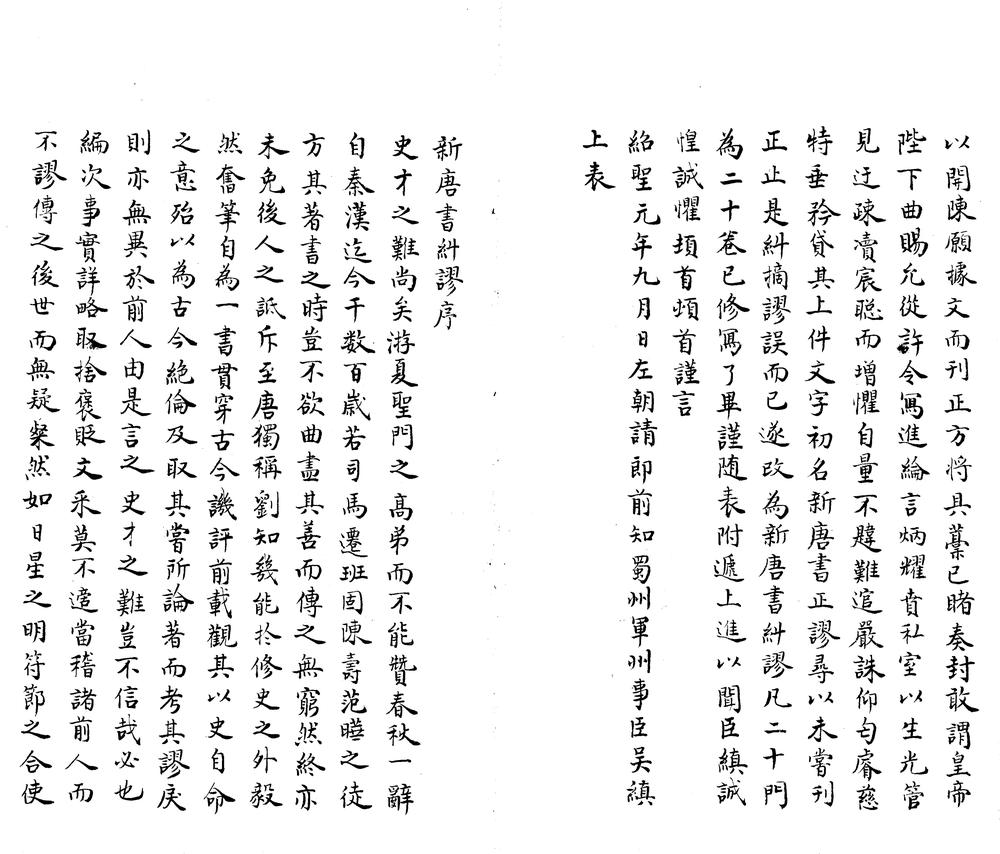 以開陳願據文而刊正方將具藁已睹奏封敢謂皇帝
陛下曲賜允從許令冩進綸言炳耀賁私室以生光管
見迂疎凟宸聪而增懼自量不韙難逭嚴誅仰匄睿慈
特垂矜貸其上件文字初名新唐書正謬尋以未嘗刊
正止是糾擿謬誤而已遂改為新唐書糾謬凡二十門
為二十卷已修冩了畢謹随表附遞上進以聞臣縝誠
惶誠懼頓首頓首謹言
紹聖元年九月日左朝請郎前知蜀州軍州事臣吴縝
上表
新唐書糾謬序
史才之難尚矣游夏聖門之髙弟而不能贊春秋一辭
自秦漢迄今千数百歳若司馬遷班固陳壽范曄之徒
方其著書之時豈不欲曲盡其善而傳之無窮然終亦
未免後人之詆斥至唐獨稱劉知幾能於修史之外毅
然奮筆自為一書貫穿古今譏評前載觀其以史自命
之意殆以為古今絶倫及取其嘗所論著而考其謬戾
則亦無異於前人由是言之史才之難豈不信哉必也
編次事實詳略取捨褒貶文采莫不適當稽諸前人而
不謬傳之後世而無疑粲然如日星之明符莭之合使